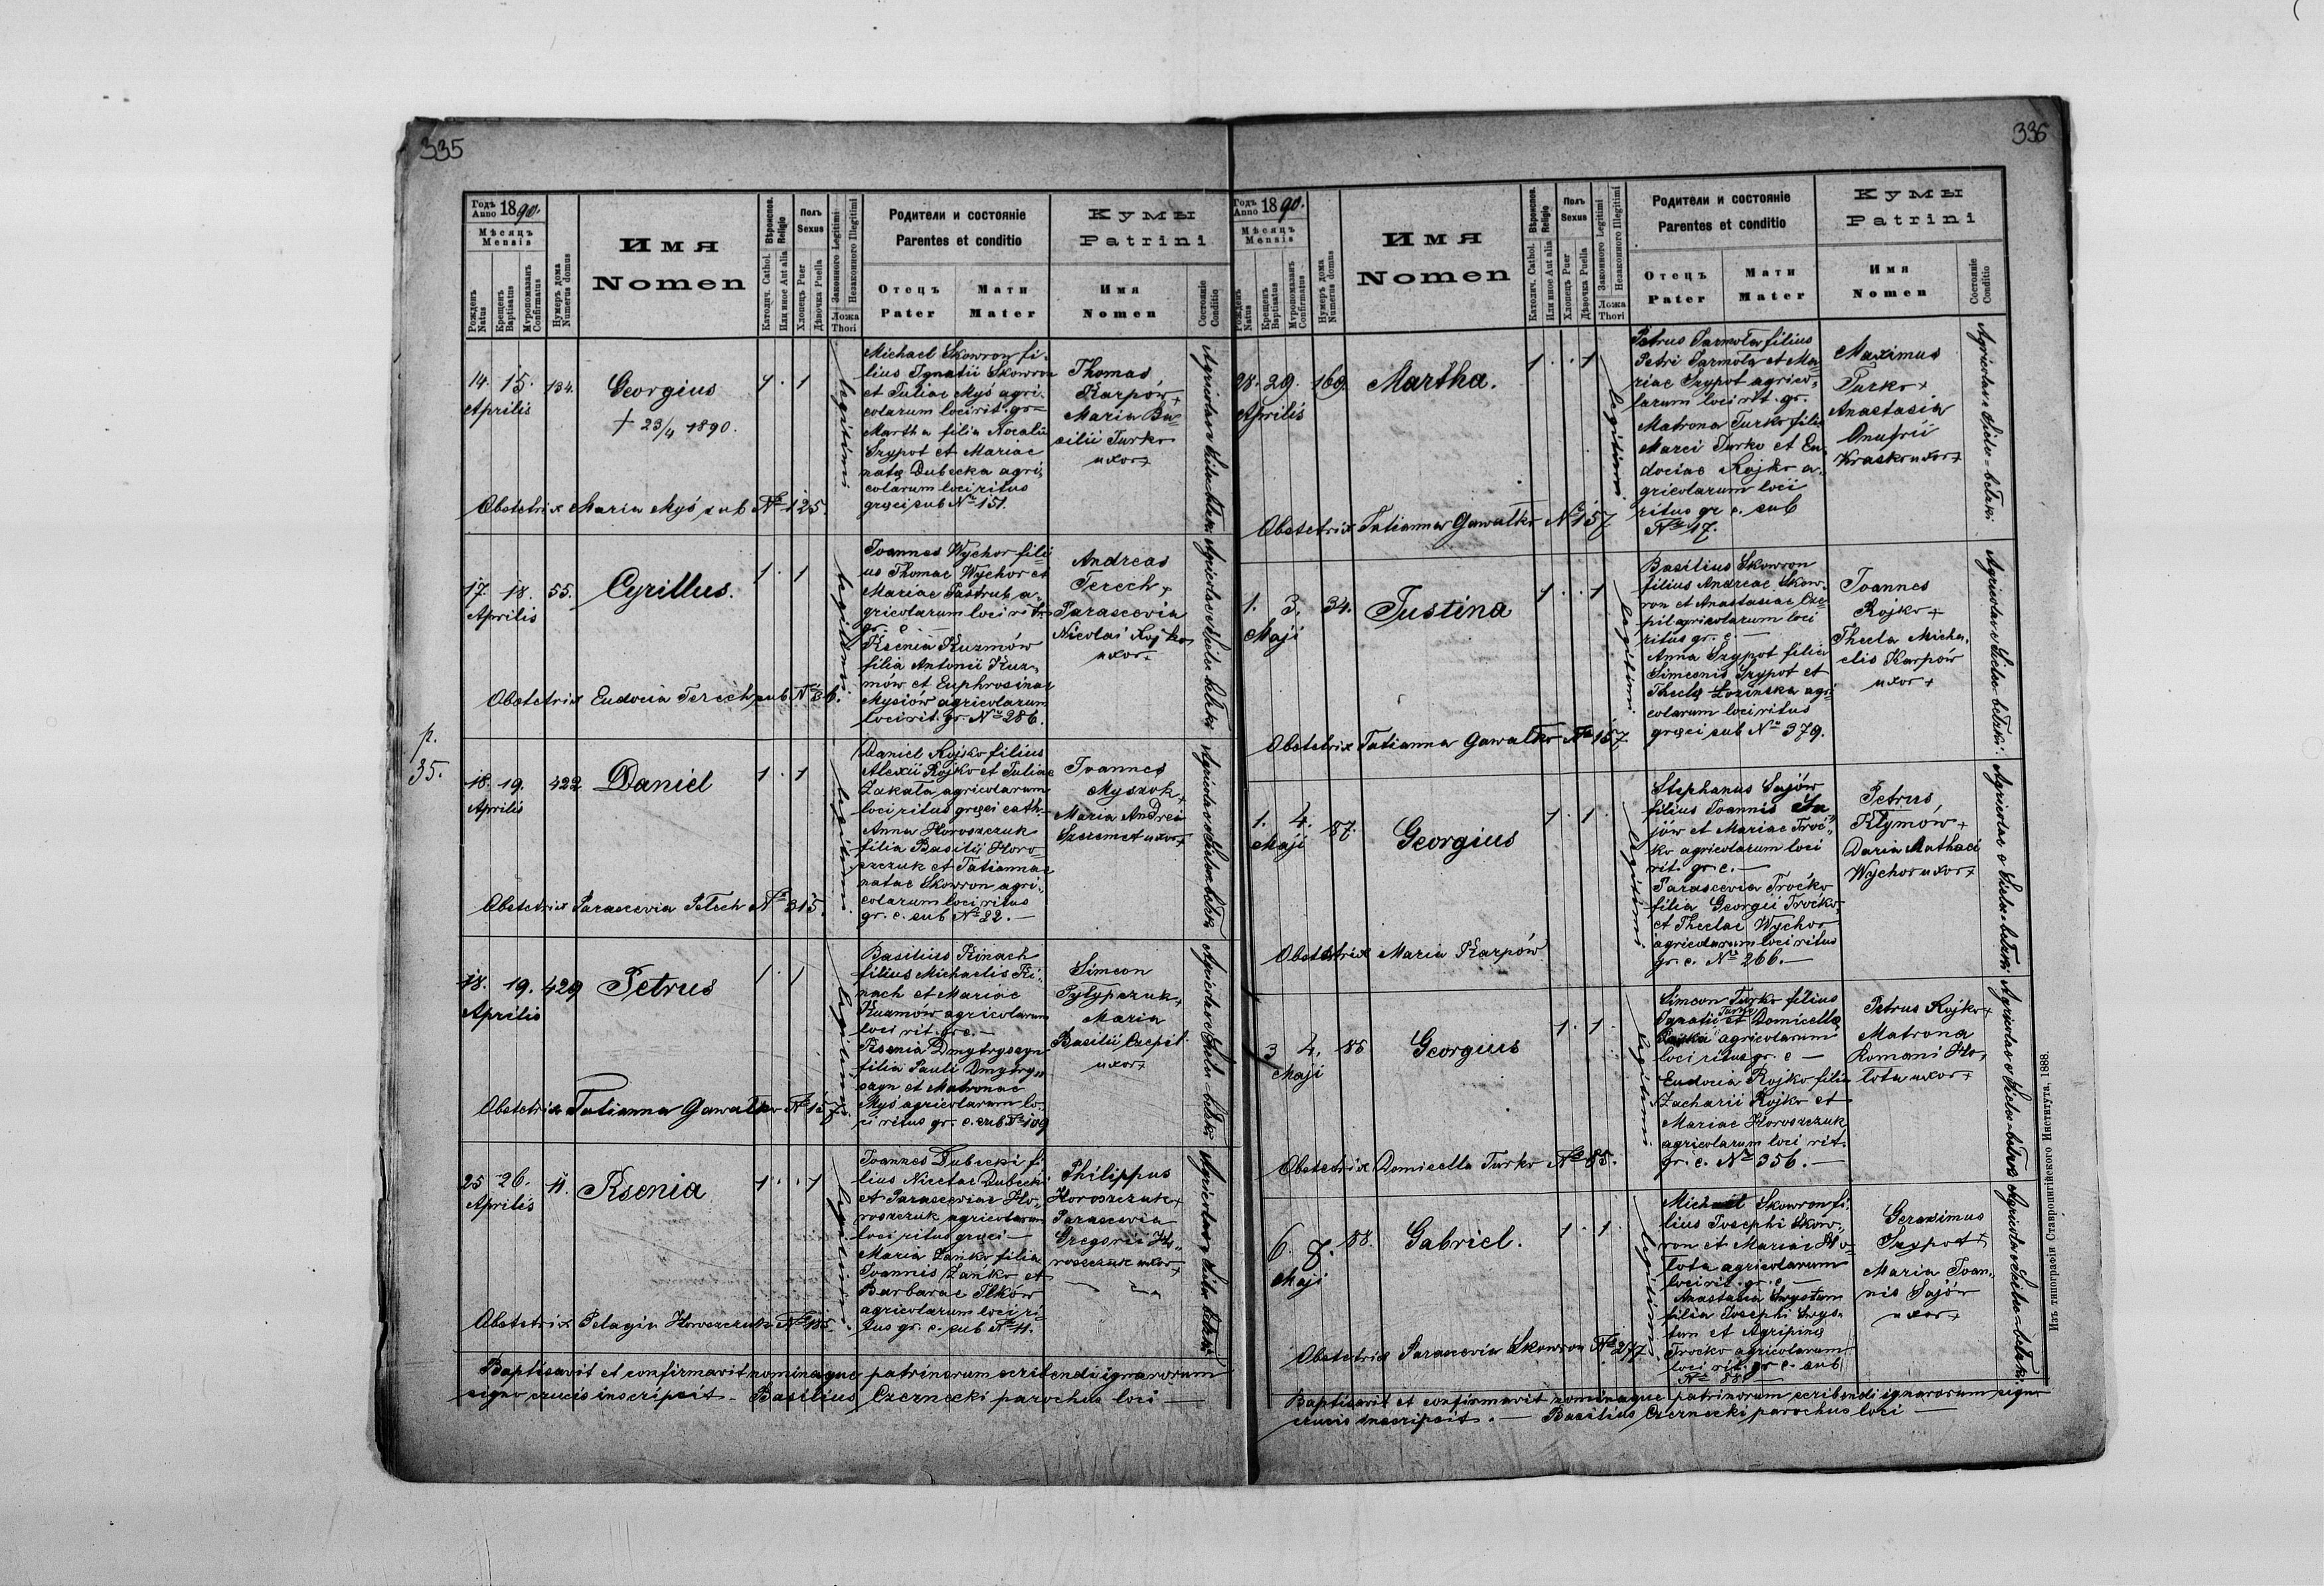 335
Годъ Anno 1890.
Мѣсяцъ
Mensis
Рожденъ Natus
Крещенъ Baptisatus
Мѵропомазанъ Confirmatus
Нумеръ дома Numerus domus
Имя
Nomen
Вѣроиспов. Religio
Католич. Cathol.
Или иное Aut alia
Полъ
Sexus
Хлопецъ Puer
Дѣвочка Puella
Законного Legitimi
Незаконного Illegitimi
Ложа
Thori
Родители и состояніе
Parentes et conditio
Отецъ
Pater
Мати
Mater
Кумы
Patrini
Имя
Nomen
Состояніе
Conditio
14. 15. 134. Georgius 1 . 1
Aprilis
+ 23/4 1890.
legitimi
Michael Skowron fi-
lius Ignatii Skowron
et Juliae Myś agri-
colarum loci rit. gr
Martha filia
Szypot et Mariae
natę Dubecka agri-
colarum loci ritus
gręci sub No 151.
Thomas
Karpów +
Maria Ba-
silii Turko
uxor +
Obstetrix Maria Myś sub No 125.
17. 18. 55. Cyrillus. 1 . 1
Aprilis
legitimi
Joannes Wychor fili-
us Thomae Wychor et
Mariae Pastrub a-
gricolarum loci rit.
gr. c.
Ksenia Kuzmów
filia Antonii Kuz-
mów et Euphrosinae
Mysiów agricolarum
loci rit. gr. No 286.
Andreas
Terech +
Parascevia
Nicolai Rojko
uxor +
Obstetrix Eudocia Terech sub No 36.
p.
35.
18. 19. 422 Daniel 1 . 1
Aprilis
legitimi
Daniel Rojko filius
Alexii Rojko et Juliae
Zakala agricolarum
loci ritus gręci cath.
Anna Horoszczuk
filia Basilii Horo-
szczuk et Tatiannae
natae Skowron agri-
colarum loci ritus
gr. c. sub No 22. —
Joannes
Myszok +
Maria Andrei
Szeremet uxor +
Obstetrix Parascevia Petech No 315.
18. 19. 429 Petrus 1 . 1
Aprilis
legitimi
Basilius Kinach
filius Michaelis Ki-
nach et Mariae
Kuzmów agricolarum
loci rit. gr c. —
Ksenia Dmytryszyn
filia Pauli Dmytry-
szyn et Matronae
Myś agricolarum lo-
ci ritus gr. c. sub No 109
Simeon
Pylypczuk +
Maria
Basilii Czepil
uxor +
Obstetrix Tatianna Gawalko No 157.
25 26. 11. Ksenia 1 . . 1
Aprilis
legitimi
Joannes Dubecki fi-
lius Nicetae Dubecki
et Parasceviae Ho-
roszczuk agricolarum
loci ritus gręci —
Maria Zańko filia
Joannis Zańko et
Barbarae Ilków
agricolarum loci ri-
tus gr. c. sub No 11.
Philippus
Horoszczuk +
Parascevia
Gregorii Ho-
roszczuk uxor +
Obstetrix Pelagia Horoszczuk No 185.
Baptisavit et confirmavit nominaque patrinorum scribendi ignarorum
signo crucis inscripsit — Basilius Czernecki parochus loci —
336
Годъ Anno 1890.
Мѣсяцъ
Mensis
Рожденъ Natus
Крещенъ Baptisatus
Мѵропомазанъ Confirmatus
Нумеръ дома Numerus domus
Имя
Nomen
Вѣроиспов. Religio
Католич. Cathol.
Или иное Aut alia
Полъ
Sexus
Хлопецъ Puer
Дѣвочка Puella
Законного Legitimi
Незаконного Illegitimi
Ложа
Thori
Родители и состояніе
Parentes et conditio
Отецъ
Pater
Мати
Mater
Кумы
Patrini
Имя
Nomen
Состояніе
Conditio
28. 29. 169. Martha. 1 . . 1
Aprilis
legitimi
Petrus Jarmola filius
Petri Jarmola et Ma-
riae Szypot agrico-
larum loci rit. gr.
Matrona Turko filia
Marci Turko et Eu-
dociae Rojko a-
gricolarum loci
ritus gr c. sub
No 17.
Maximus
Turko +
Anastasia
Onufrii
Krasko uxor +
Obstetrix Tatianna Gawalko No 157
1. 3. 34. Justina 1 . . 1
Maji
legitimi
Basilius Skowron
filius Andreae Skow-
ron et Anastasiae Cze-
pil agricolarum loci
ritus gr. c. —
Anna Szypot filia
Simeonis Szypot et
Theclę Łozinska agri-
colarum loci ritus
gręci sub No 379.
Joannes
Rojko +
Thecla Micha-
elis Karpów
uxor +
Obstetrix Tatianna Gawalko No 157
1. 4. 87. Georgius 1 . 1
Maji
legitimi
Stephanus Sajów
filius Joannis Sa-
jów et Mariae Troć-
ko agricolarum loci
rit. gr. c. —
Parascevia Troćko
filia Georgii Troćko
et Theclae Wychor
agricolarum loci ritus
gr. c. No 266. —
Petrus
Klymów +
Daria Mathaei
Wychor uxor +
Obstetrix Maria Karpów
3 4. 85 Georgius 1 . 1
Maji
legitimi
Simeon Turko filius
Ignatii Turko et Domicellę
Rojko agricolarum
loci ritus gr. c —
Eudocia Rojko filia
Zacharii Rojko et
Mariae Horoszczuk
agricolarum loci rit.
gr. c. No 356. —
Petrus Rojko +
Matrona
Romani Ho-
lota uxor +
Obstetrix Domicella Turko No 85.
6. 8. 88. Gabriel. 1 . 1
Maji
legitimi
Michael Skowron fi-
lius Josephi Skow-
ron et Mariae Ho-
lota agricolarum
loci rit. gr. c —
Anastasia Chrystum
filia Josephi Chrys-
tum et Agripinę
Troćko agricolarum
loci rit. gr c. sub
No 88 —
Geraximus
Szypot +
Maria Joan-
nis Sajów
uxor +
Obstetrix Parascevia Skowron No 277.
Baptisavit et confirmavit nominaque patrinorum scribendi ignarorum signo
crucis inscripsit. — Basilius Czernecki parochus loci —
Изъ типографіи Ставропигійского Института. 1888.